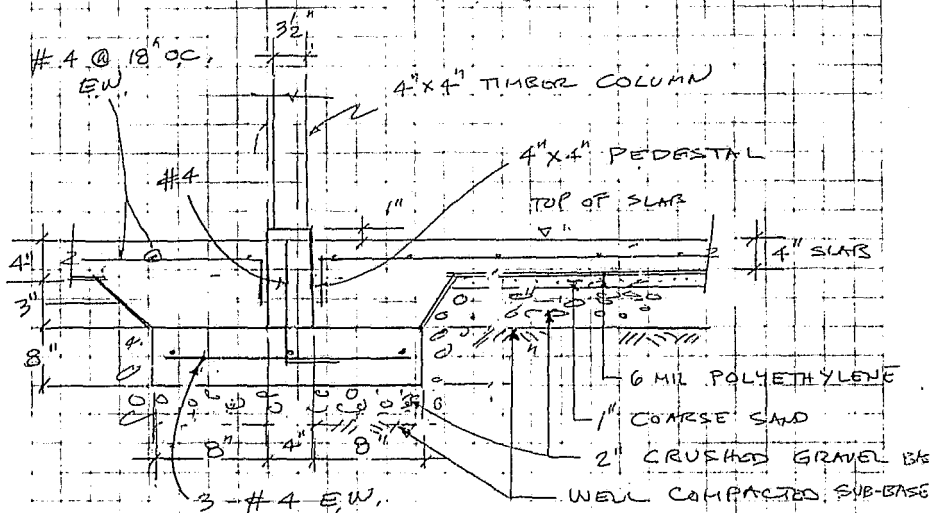 3½"
#4 @ 18" OC.
EW
4"X4" TIMBER COLUMN
#4
4"X4" PEDESTAL
1"
TOP OF SLAB
4"
4" SLAB
3"
8"
6 MIL POLYETHYLENE
1" COARSE SAND
8" 4" 8"
2" CRUSHED GRAVEL
3-#4 E.W.
WELL COMPACTED SUB-BASE